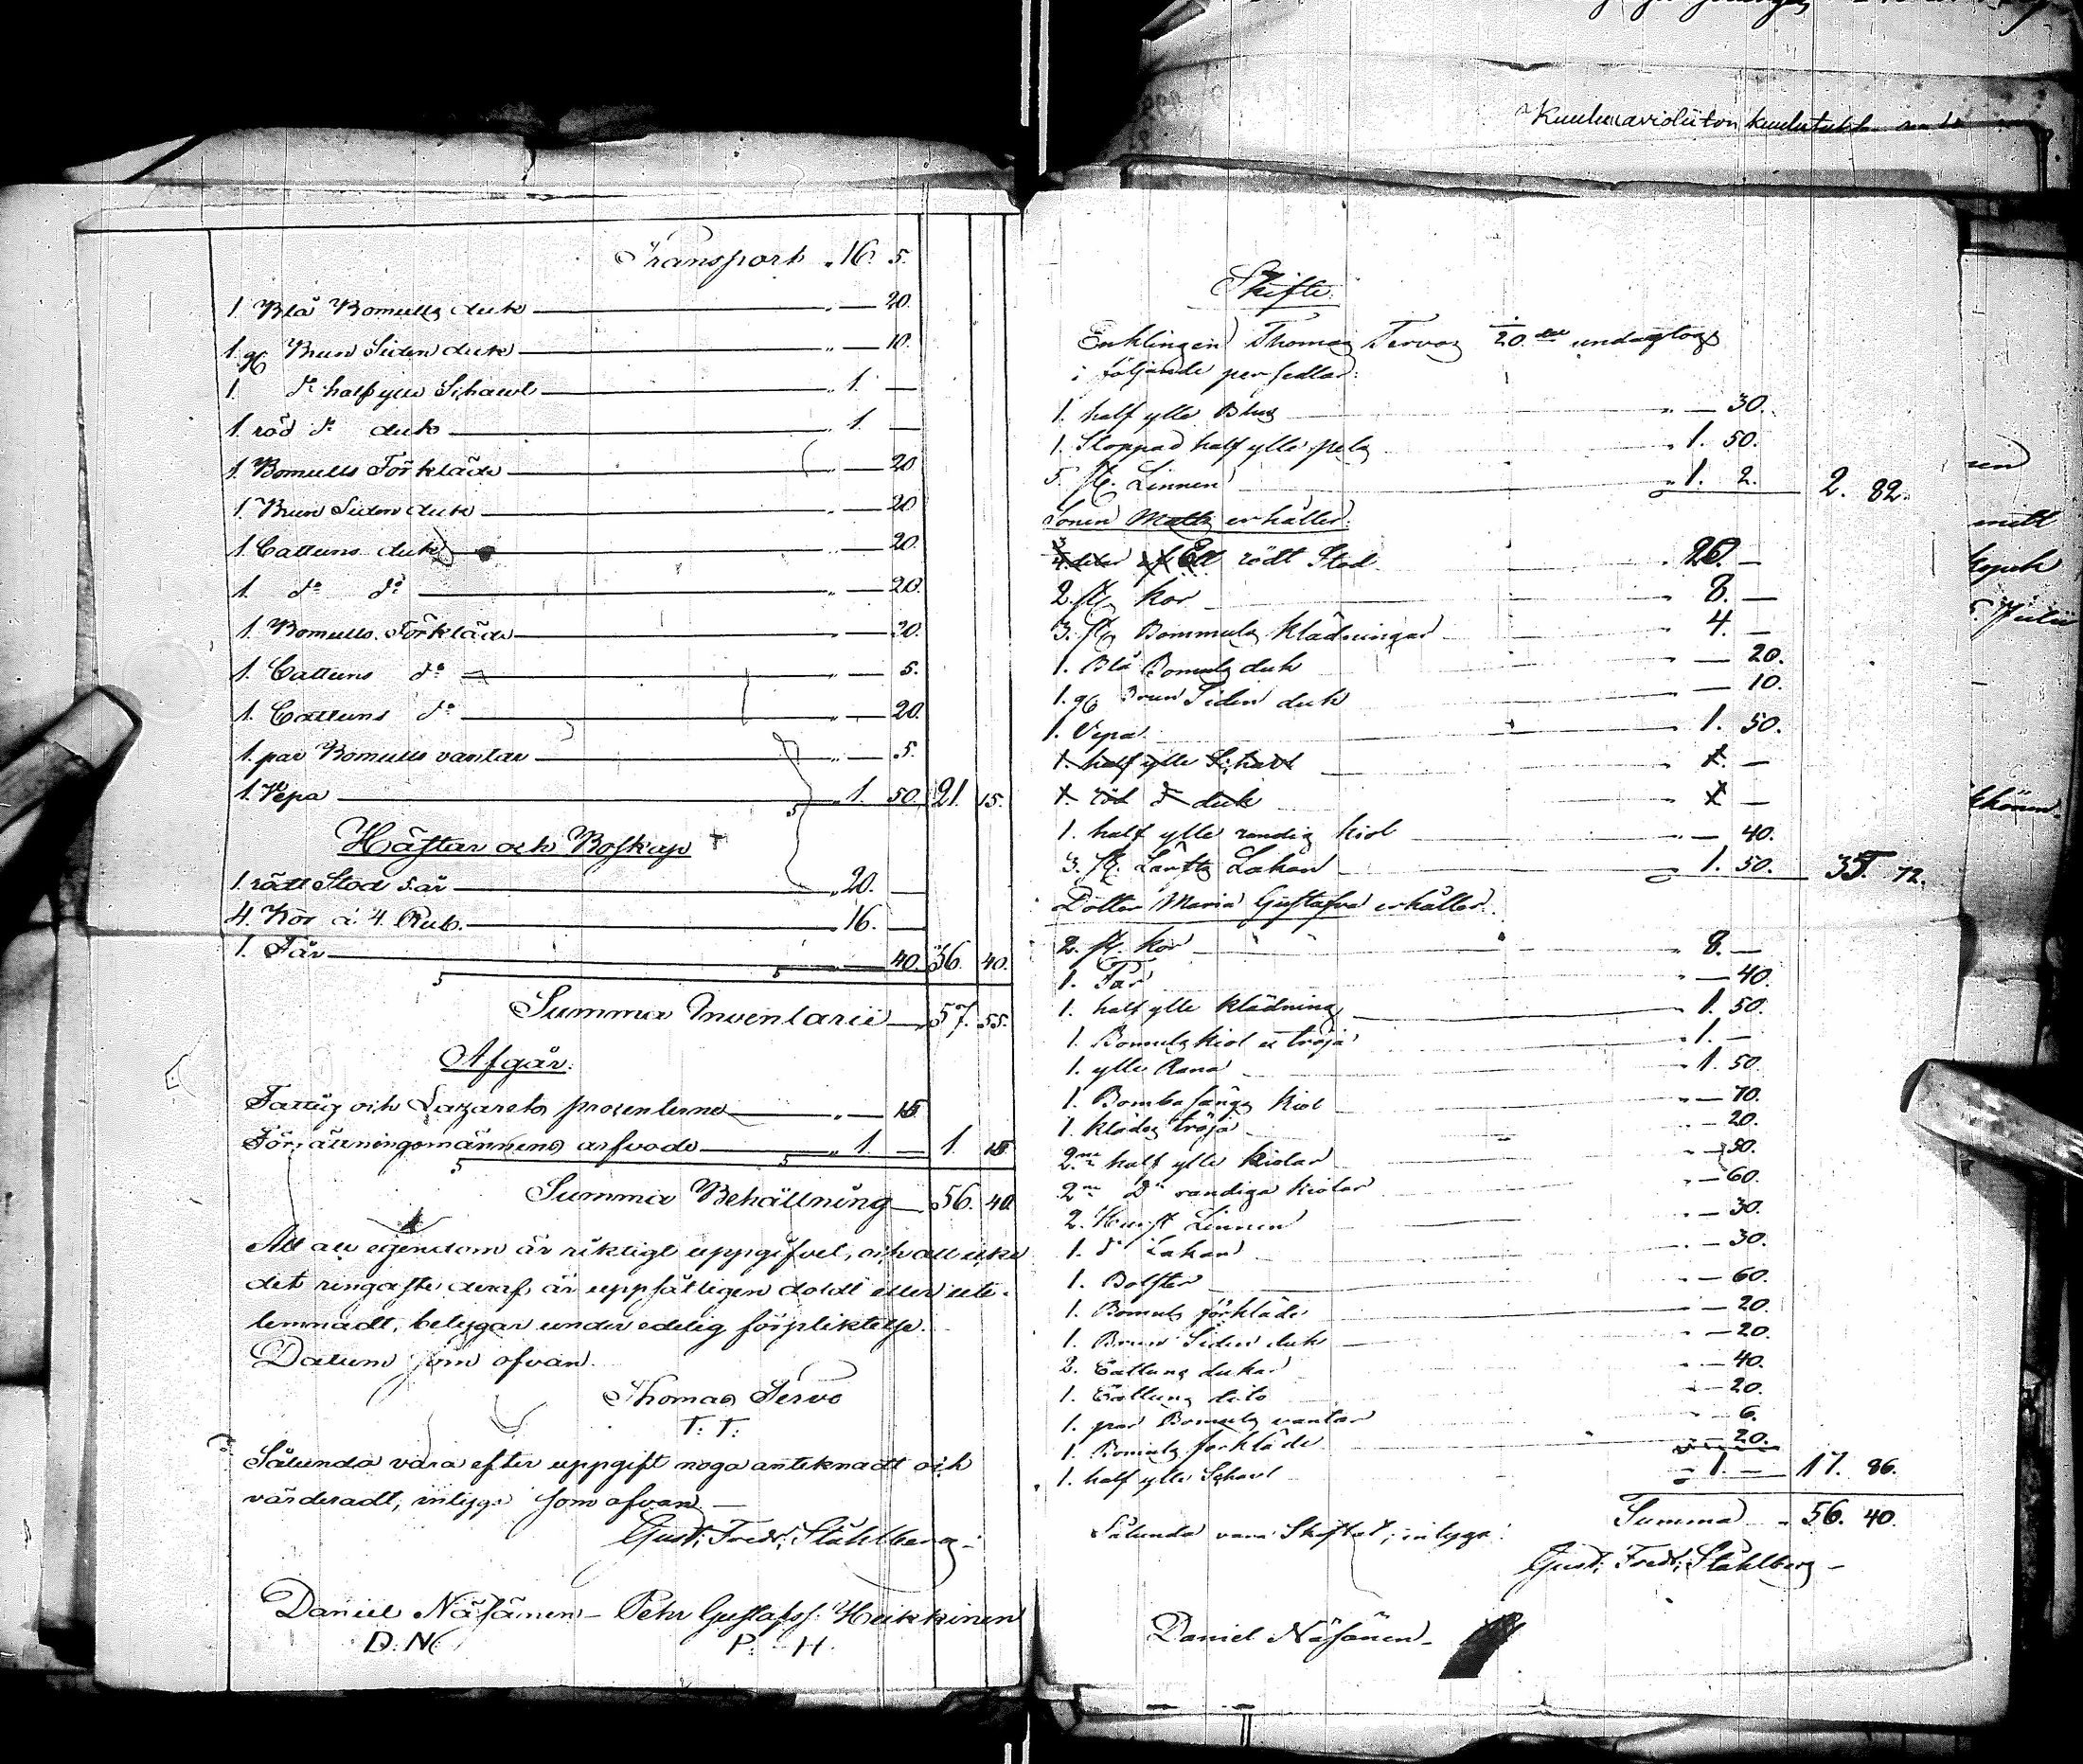 Transport „ 16. 5.
1. Blå Bomulls duk „ — 20.
1. gl Brun Siden duk „ — 10.
1. d:o halfylle Schawl „ 1. —
1. röd d:o duk „ 1. —
1. Bomulls Förkläde „ — 20
1. Brun Siden duk „ — 20
1. Cattuns duk „ — 20.
1. d:o d:o „ — 20.
1. Bomulls Förkläde „ — 20.
1. Cattuns d:o „ — 5.
1. Cattuns d:o „ — 20.
1. par Bomulls vantar „ — 5.
1. Vepa „ 1. 50. 21. 15.
Hästar och Boskap
1. rödt Stod 5 år „ 20. —
4. Kor à 4. Rub. „ 16. —
1. Får — 40. 36. 40.
Summa Inventarii „ 57. 55.
Afgår.
Fattig och Lazarets procenterne „ — 15
Förrättningsmännens arfvode „ 1. — 1. 15
Summa Behållning 56. 40.
Att all egendom är riktigt uppgifvet, och att icke
det ringaste deraf är uppsåtligen doldt eller ute-
lemnadt, betygar under edelig förpliktelse.
Datum som ofvan.
Thomas Tervo
T. T.
Sålunda vara efter uppgift noga antecknadt och
värderadt, intyga som ofvan. —
Gust: Fredr: Ståhlberg —
Daniel Näsänen — Petr Gustafss: Heikkinen
D. N. P. H.
Skifte.
Enklingen Thomas Tervos 20:de undantogs
i följande persedlar:
1. half ylle Blus „ — 30.
1. Stoppad half ylle pels „ 1. 50.
5. st. Linnen „ 1. 2. 2. 82.
Sonen Matts erhåller:
Ett rödt Stod „ 20. —
2. st. Kor „ 8. —
3. st. Bommuls Klädningar „ 4. —
1. Blå Bomuls duk „ — 20.
1. gl Brun Siden duk „ — 10.
1. Vepa „ 1. 50.
1. half ylle Schavl 1. —
1. röd d:o duk 1. —
1. half ylle randig kiol „ — 40.
3. st. Lärfts Lakan „ 1. 50. 35. 72.
Dotter Maria Gustafva erhåller.
2. st. Kor „ 8. —
1. Får „ — 40.
1. half ylle klädning „ 1. 50.
1. Bomuls kiol et tröja „ 1. —
1. ylle Rana „ 1. 50.
1. Bombasängs kiol „ — 70.
1. klädes tröja „ — 20.
2:ne half ylle kiolar
2:ne D:o randiga kiolar „ — 60.
2. Linnen „ — 30.
1. d:o Lakan „ — 30.
1. Bolster „ — 60.
1. Bomuls förkläde „ — 20.
1. Brun Siden duk „ — 20.
2. Cattuns dukar „ — 40.
1. Cattuns dito „ — 20.
1. par Bomuls vantar „ — 6.
1. Bomuls förkläde „ — 20.
1. half ylle Schavl „ 1. — 17. 86.
Summa „ 56. 40.
Sålunda vara Skiftat; intyga:
Gust: Fredr: Ståhlberg —
Daniel Näsänen —